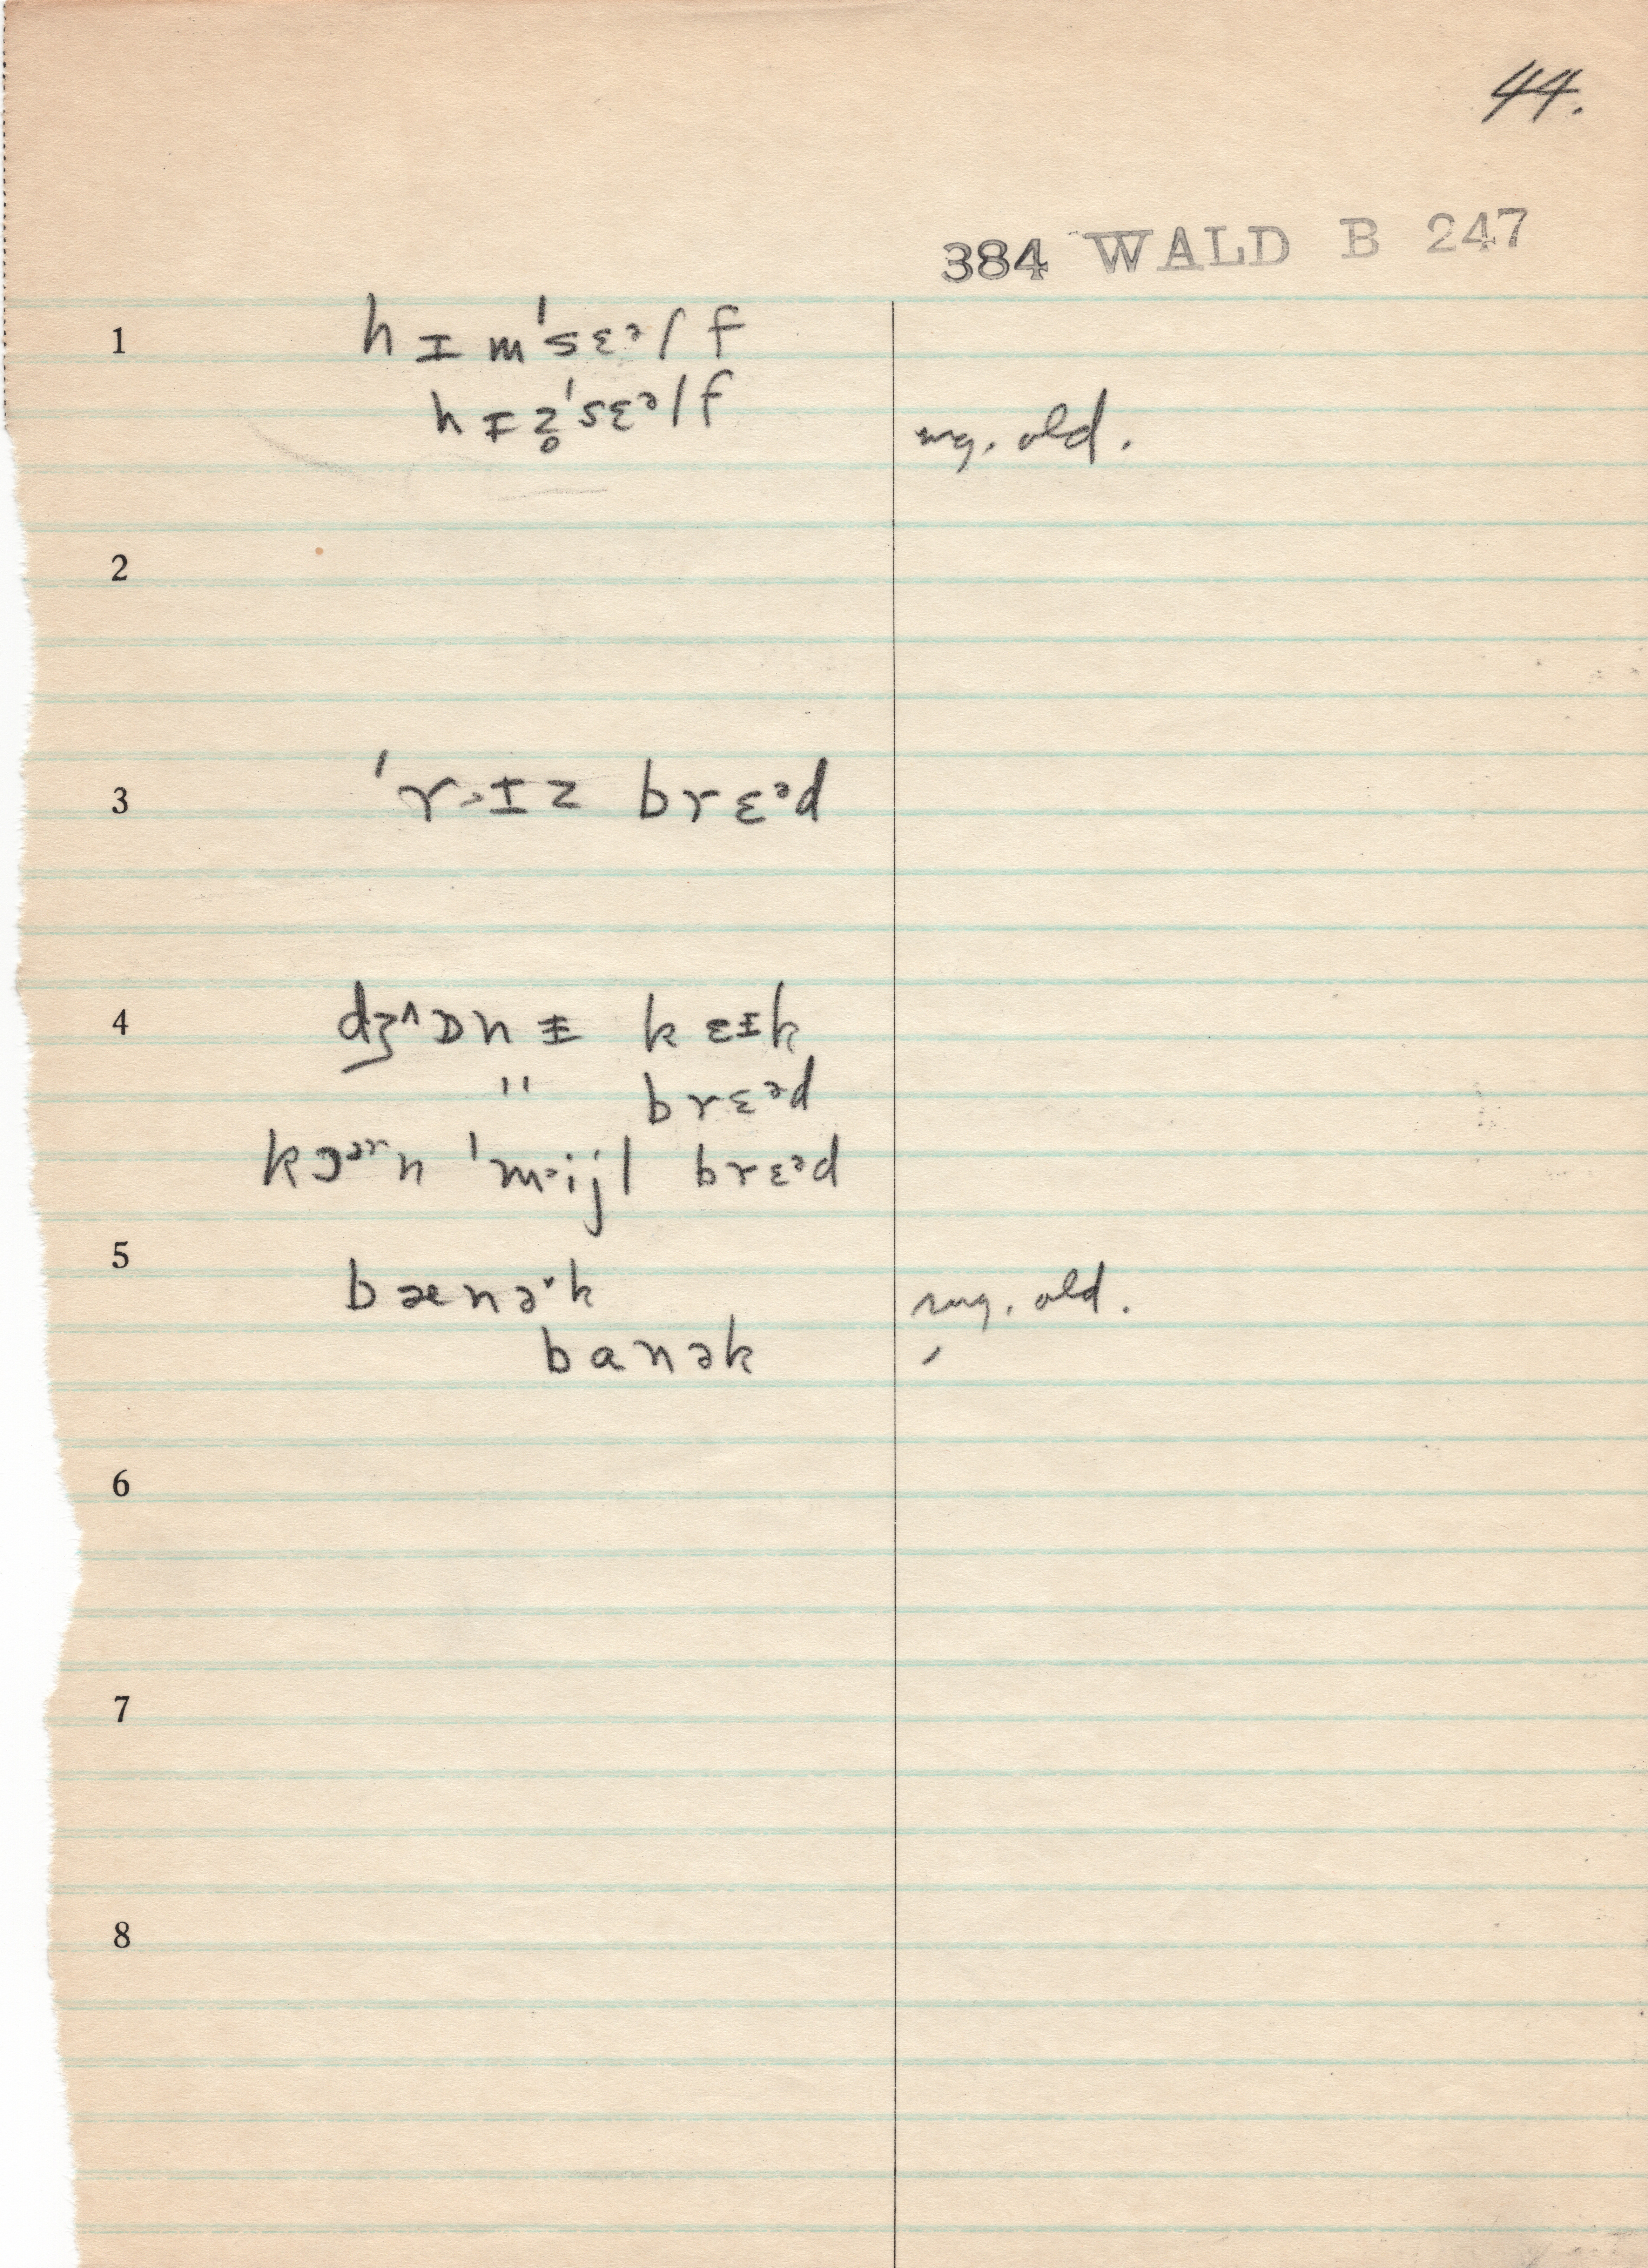 44.
384 WALD B 247
1 hɪm'sɛᵊlf
hɪz̥'sɛᵊlf sug. old.
2
3 'r˃ɪz brɛᵊd
4 dʒ^ɒnɪ kɛɪk
" brɛᵊd
kɔᵊʳn 'm˃ijl brɛᵊd
5 bænə˅k sug. old.
banək ′
6
7
8